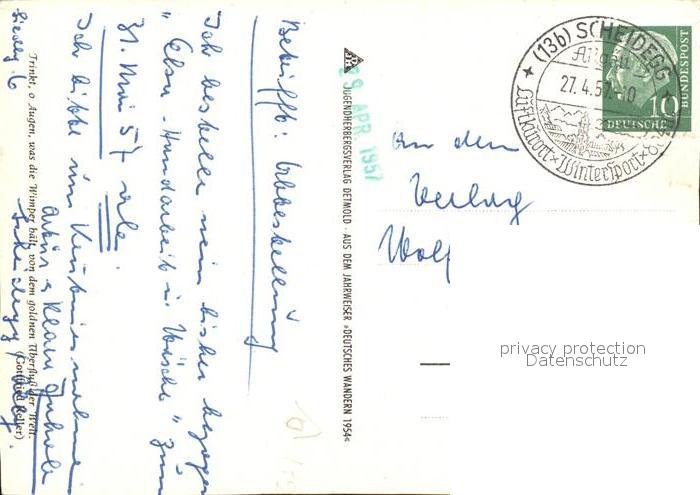 Betrifft: Abbestellung
Ich bestelle mein bisher bezogene
" Elsa - Handarbeit u. Wäsche " zum
31. Mai 57 ab.
Ich bitte um Kenntnisnahme
Scheidegg / Allg.
Siedlg. 6
Trinkt, o Augen, was die Wimper hält, von dem goldnen Überfluß der Welt.
(Gottfried Keller)
JUGENDHERBERGSVERLAG DETMOLD · AUS DEM JAHRWEISER »DEUTSCHES WANDERN 1954«
29 APR. 1957
(13b) SCHEIDEGG
Allgäu
27.4.57
Luftkurort × Wintersport
10
DEUTSCHE
BUNDESPOST
An den
Verlag
Wolf
privacy protection
Datenschutz